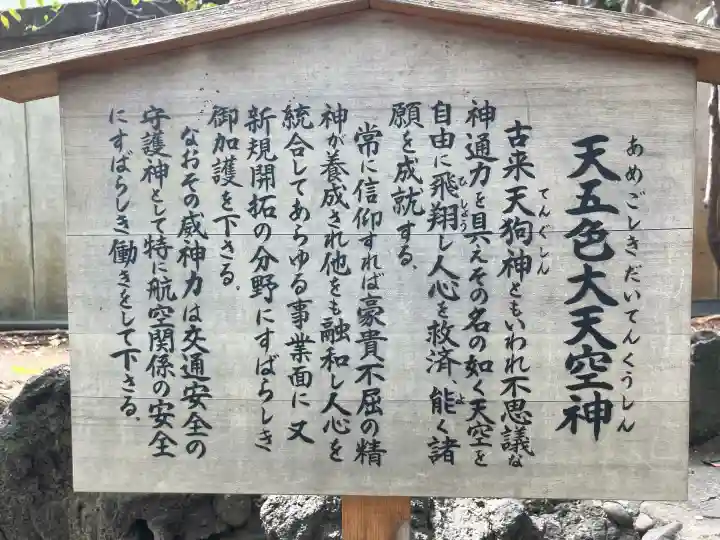 あめごしきだいてんくうしん
天五色大天空神
てんぐしん
古来天狗神ともいわれ不思議な
神通力を具えその名の如く天空を
ひしょう
自由に飛翔し人心を救済、能く諸
よ
願を成就する。
常に信仰すれば豪貴不屈の精
神が養成され他をも融和し人心を
統合してあらゆる事業面に又
新規開拓の分野にすばらしき
御加護を下さる。
なおその威神力は交通安全の
守護神として特に航空関係の安全
にすばらしき働きをして下さる。